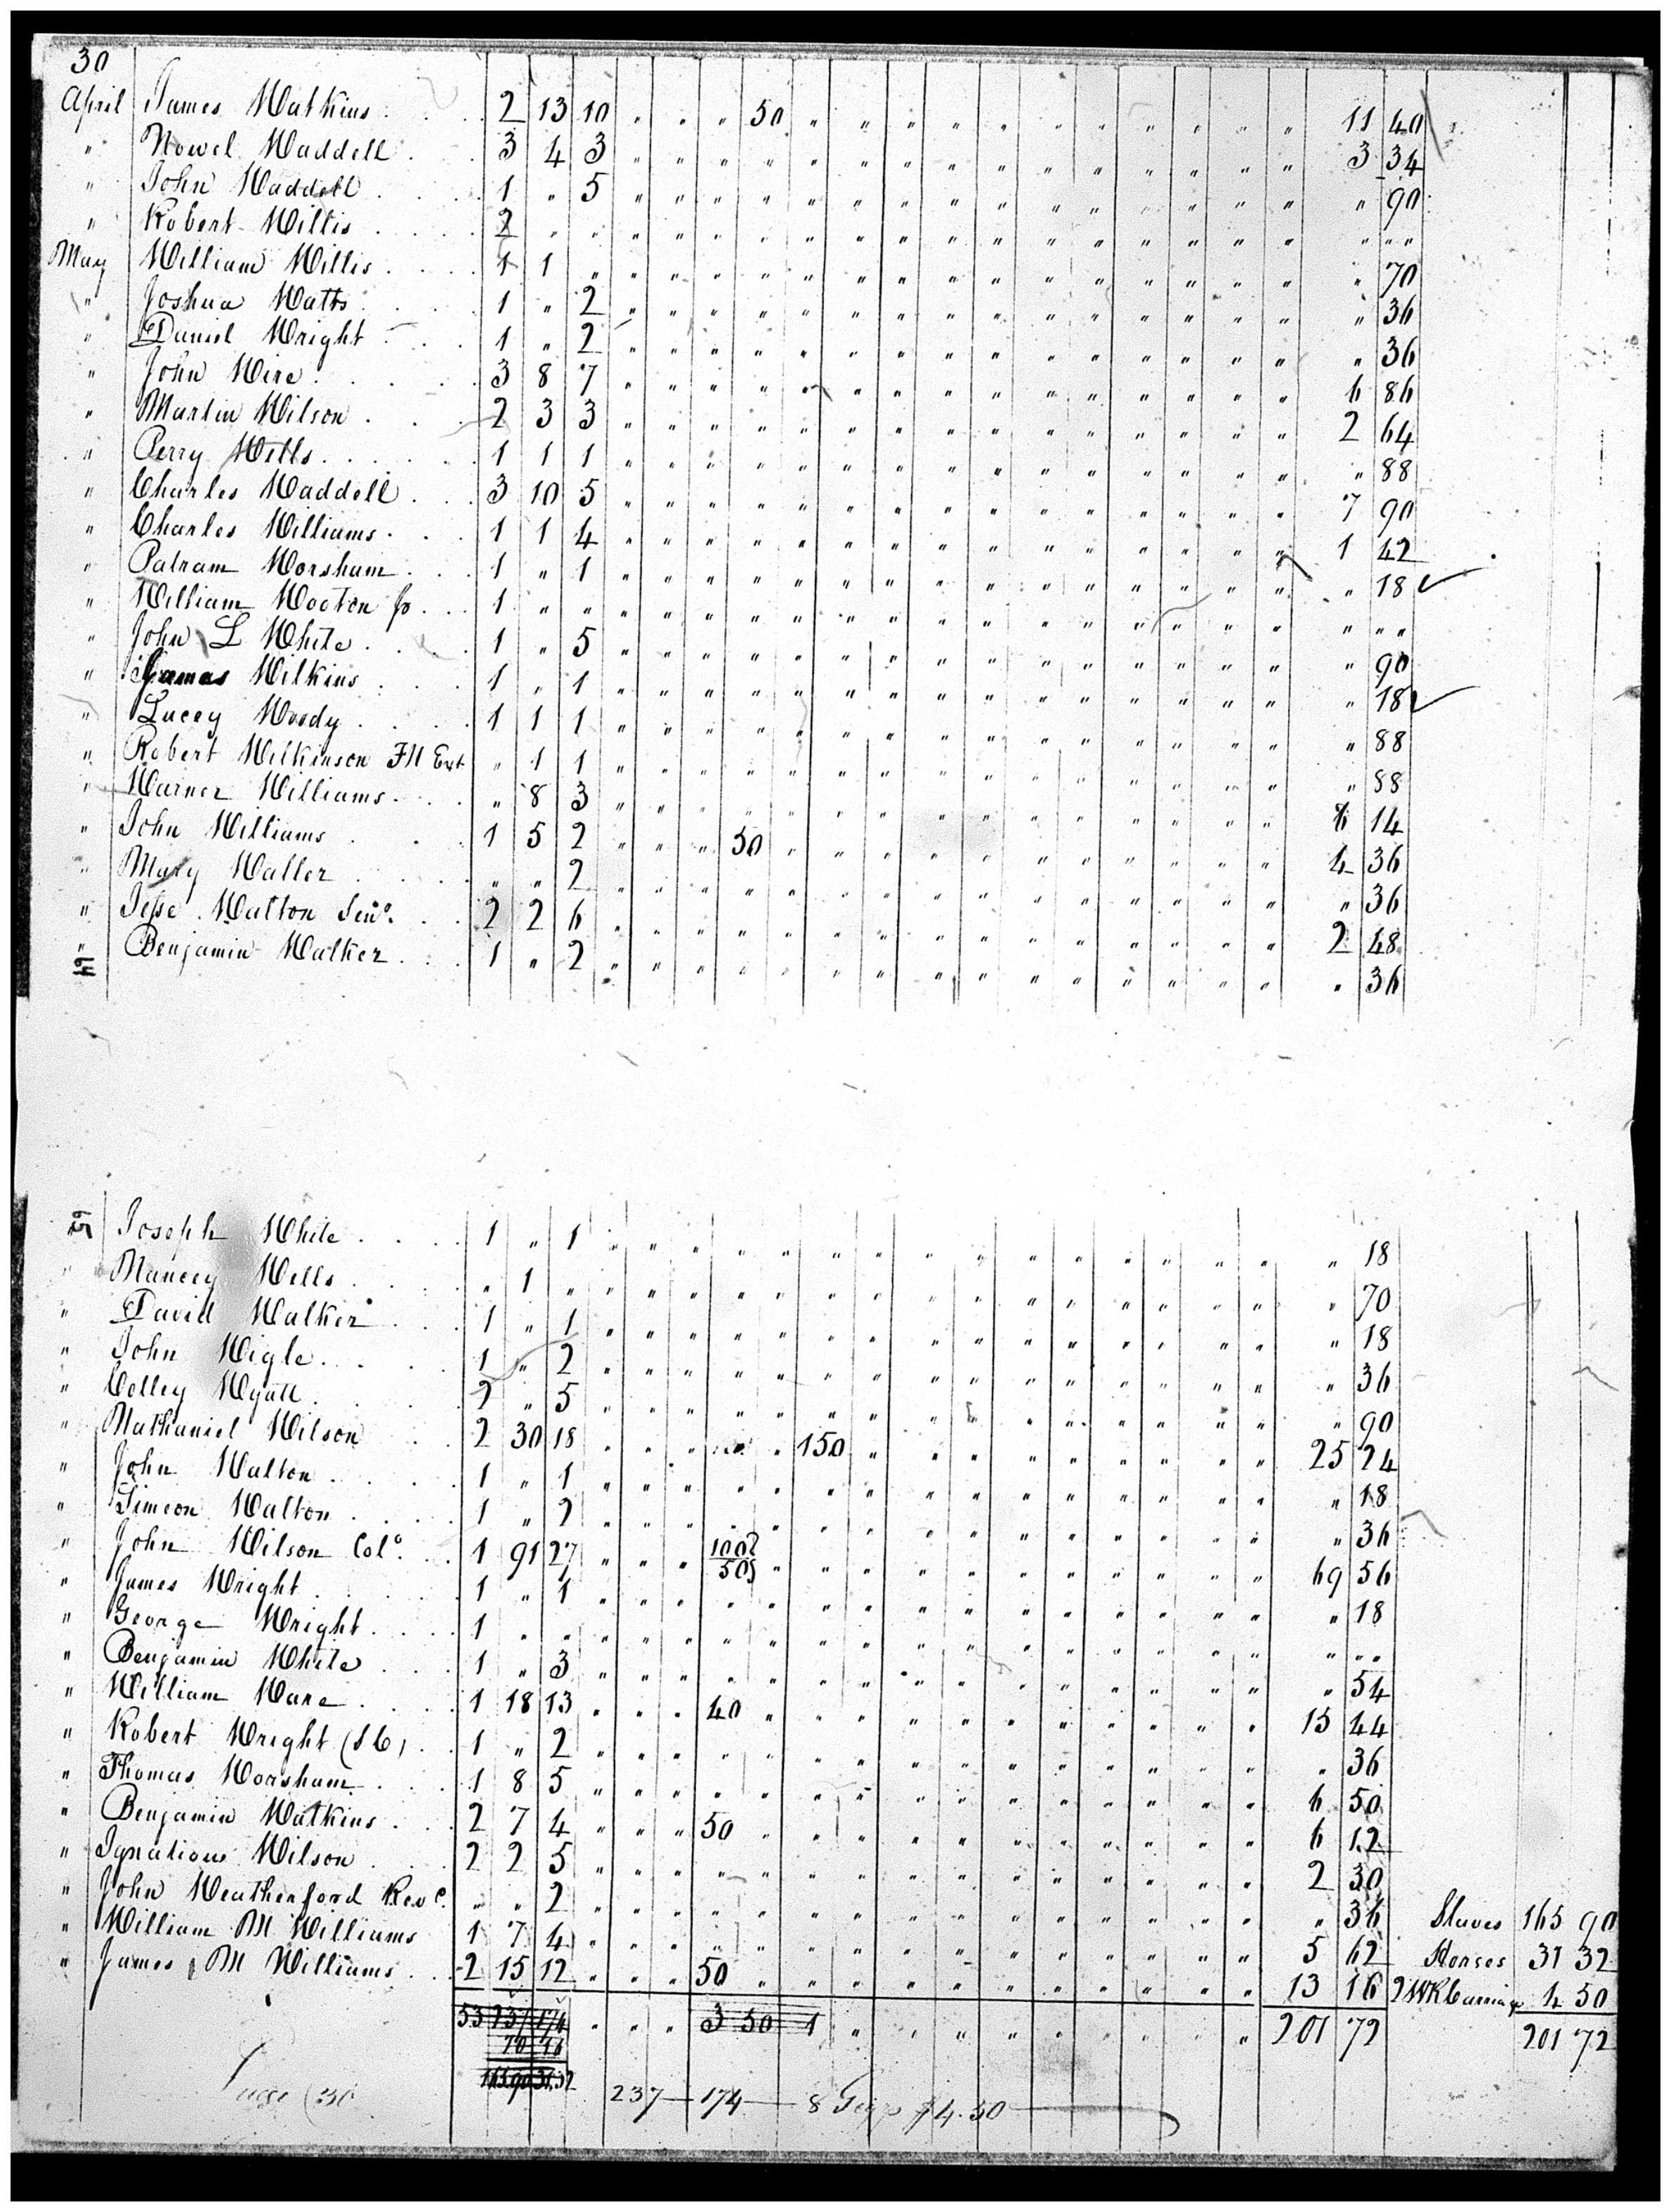 30
April James Watkins 2 13 10 " " " 50 " " " " " " " " " " " 11 40
" Nowel Waddell 3 4 3 " " " " " " " " " " " " " " " 3 34
" John Waddell 1 " 5 " " " " " " " " " " " " " " " " 90
" Robert Willis 2 " " " " " " " " " " " " " " " " " " " "
May William Willis 1 1 " " " " " " " " " " " " " " " " " 70
" Joshua Watts 1 " 2 " " " " " " " " " " " " " " " " 36
" Daniel Wright 1 " 2 " " " " " " " " " " " " " " " " 36
" John Wire 3 8 7 " " " " " " " " " " " " " " " 6 86
" Martin Wilson 2 3 3 " " " " " " " " " " " " " " " 2 64
" Perry Wells 1 1 1 " " " " " " " " " " " " " " " " 88
" Charles Waddell 3 10 5 " " " " " " " " " " " " " " " 7 90
" Charles Williams 1 1 4 " " " " " " " " " " " " " " " 1 42
" Patram Worsham 1 " 1 " " " " " " " " " " " " " " " " 18 ✓
" William Wooton Jr 1 " " " " " " " " " " " " " " " " " " " "
" John L White 1 " 5 " " " " " " " " " " " " " " " " 90
" James Wilkins 1 " 1 " " " " " " " " " " " " " " " " 18 ✓
" Lucey Woody 1 1 1 " " " " " " " " " " " " " " " " 88
" Robert Wilkinson Ext " 1 1 " " " " " " " " " " " " " " " " 88
" Warner Williams " 8 3 " " " " " " " " " " " " " " " 6 14
" John Williams 1 5 2 " " " 50 " " " " " " " " " " " 4 36
" Mary Waller " " 2 " " " " " " " " " " " " " " " " 36
" Jesse Walton Senr. 2 2 6 " " " " " " " " " " " " " " " 2 48
" Benjamin Walker 1 " 2 " " " " " " " " " " " " " " " " 36
64
65 Joseph White 1 " 1 " " " " " " " " " " " " " " " " 18
" Mancey Wells " 1 " " " " " " " " " " " " " " " " " 70
" David Walker 1 " 1 " " " " " " " " " " " " " " " " 18
" John Wigle 1 " 2 " " " " " " " " " " " " " " " " 36
" Colley Wyatt 2 " 5 " " " " " " " " " " " " " " " " 90
" Nathaniel Wilson 2 30 18 " " " " " 150 " " " " " " " " " 25 24
" John Walton 1 " 1 " " " " " " " " " " " " " " " " 18
" Simeon Walton 1 " 2 " " " " " " " " " " " " " " " " 36
" John Wilson Colo. 1 91 27 " " " 100 50 " " " " " " " " " " " 69 56
" James Wright 1 " 1 " " " " " " " " " " " " " " " " 18
" George Wright 1 " " " " " " " " " " " " " " " " " " " "
" Benjamin White 1 " 3 " " " " " " " " " " " " " " " " 54
" William Ware 1 18 13 " " " 40 " " " " " " " " " " " 15 44
" Robert Wright 1 " 2 " " " " " " " " " " " " " " " " 36
" Thomas Worsham 1 8 5 " " " " " " " " " " " " " " " 6 50
" Benjamin Watkins 2 7 4 " " " 50 " " " " " " " " " " " 6 12
" Ignatious Wilson 2 2 5 " " " " " " " " " " " " " " " 2 30
" John Weatherford Revd. " " 2 " " " " " " " " " " " " " " " " 36 Slaves 165 90
" William M Williams 1 7 4 " " " " " " " " " " " " " " " 5 62 Horses 31 32
" James M Williams 2 15 12 " " " 50 " " " " " " " " " " " 13 16 2 Wh Carriage 4 50
53 237 174 " " " 3 50 1 " " " " " " " " " 201 72 201 72
70 18
165.90 31.32
237 — 174 — 8 Gigs $4.50